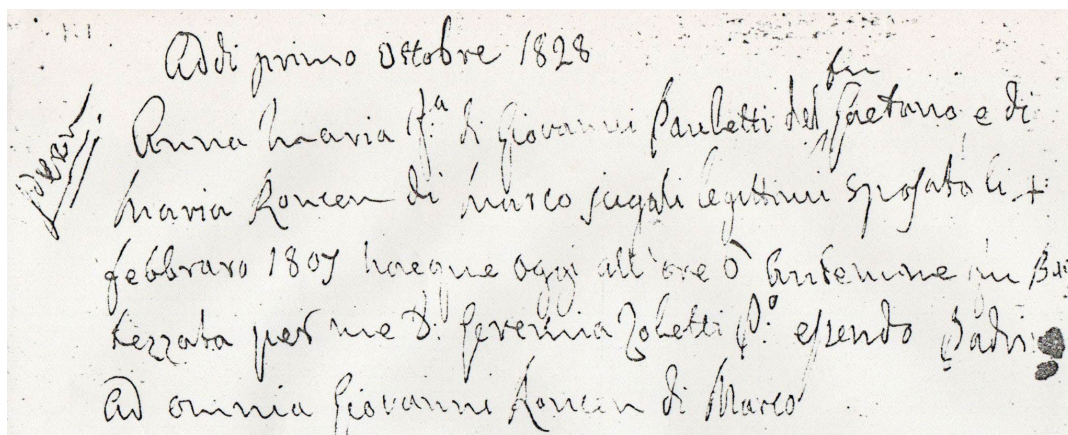 Addi primo Ottobre 1828
Anna Maria F.a di Giovanni Pauletti del fu Gaetano e di
Maria Roncen di Marco jugali legittimi sposati li
febbraro 1807 nacque oggi all'ore antemine fu Bat
tezzata per me D: Geremia Zoletti P.o essendo Padri
ad omnia Giovanni Roncen di Marco